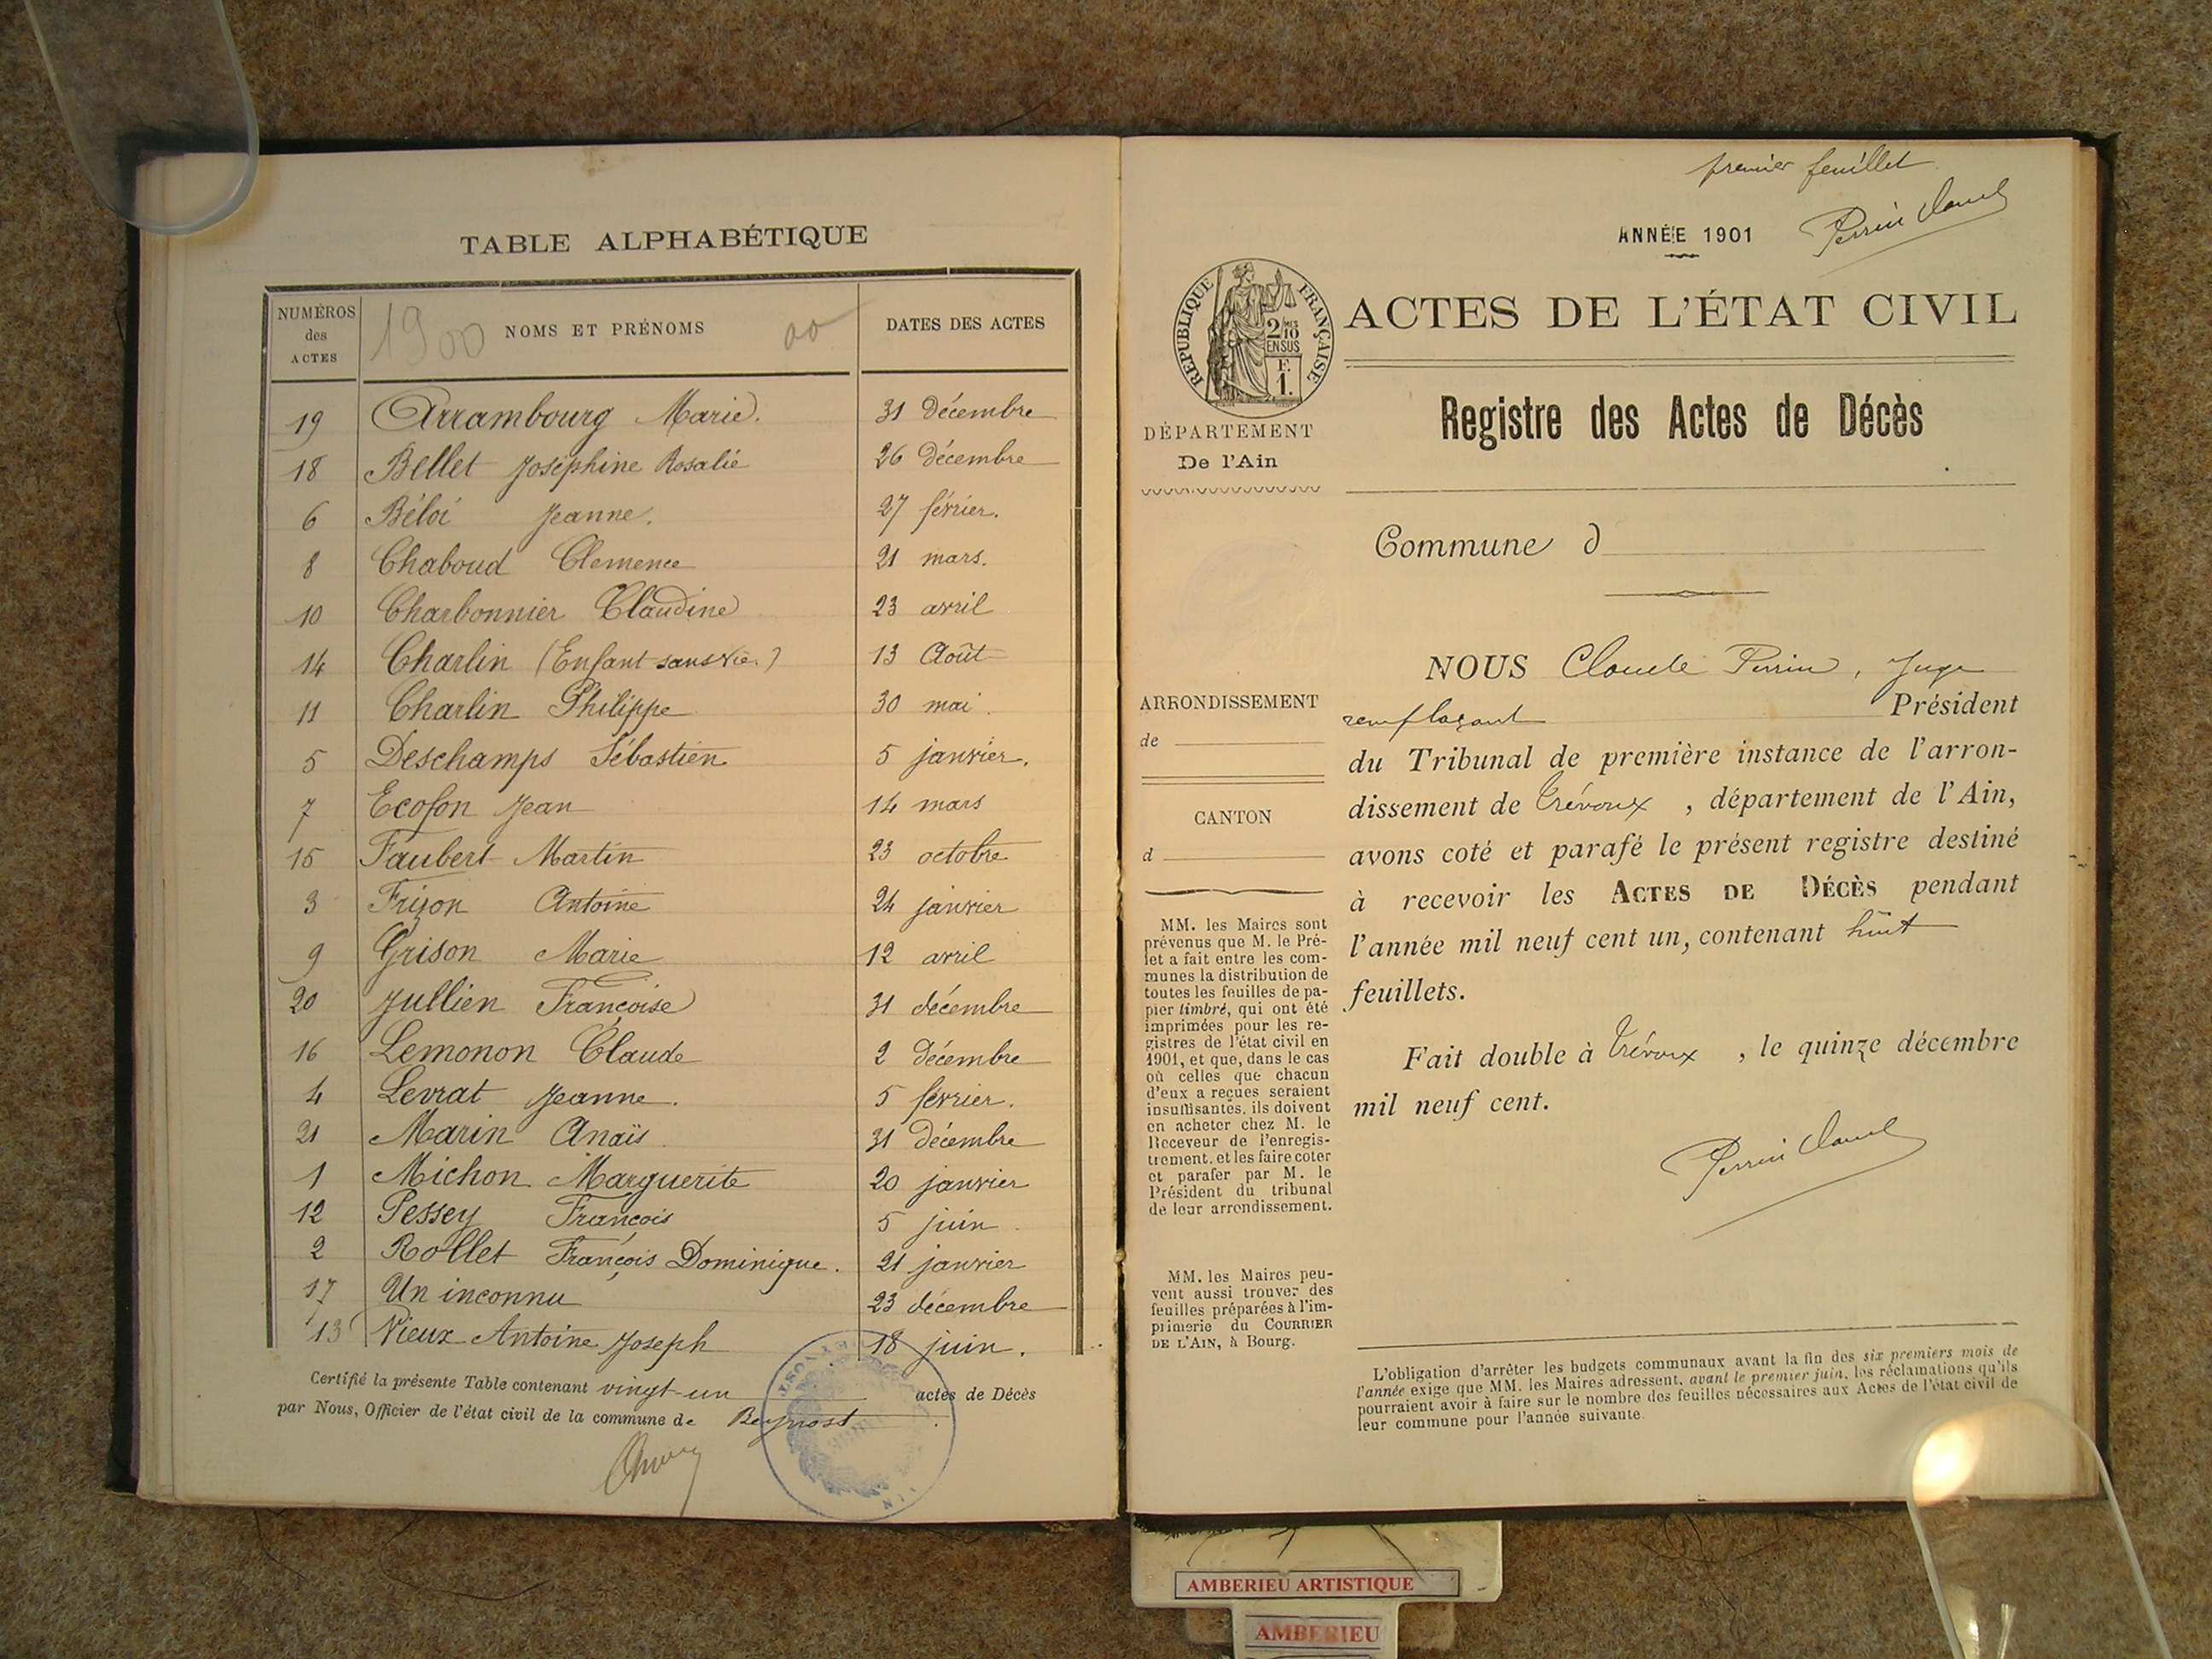 TABLE ALPHABÉTIQUE
NUMÉROS
des
ACTES
1900 NOMS ET PRÉNOMS 00
DATES DES ACTES
19 Arrambourg Marie. 31 Décembre
18 Bellet Joséphine Rosalie 26 Décembre
6 Béloi Jeanne. 27 février.
8 Chaboud Clemence 21 mars.
10 Charbonnier Claudine 23 avril
14 Charlin (Enfant sans vie.) 13 Août
11 Charlin Philippe 30 mai.
5 Deschamps Sébastien 5 janvier.
7 Ecofon Jean 14 mars
15 Faubert Martin 23 octobre
3 Frizon Antoine 24 janvier
9 Grison Marie 12 avril
20 Jullien Françoise 31 décembre
16 Lemonon Claude 2 Décembre
4 Levrat Jeanne. 5 février.
21 Marin Anaïs. 31 Décembre
1 Michon Marguerite 20 janvier
12 Pessey François 5 juin.
2 Rollet François Dominique. 21 janvier
17 Un inconnu 23 décembre
13 Vieux Antoine Joseph 18 juin.
Certifié la présente Table contenant vingt-un actes de Décès
par Nous, Officier de l'état civil de la commune de Beynost.
premier feuillet
Perrin Claude
ANNÉE 1901
RÉPUBLIQUE FRANÇAISE
2/10
EN SUS
F.
1.
ACTES DE L'ÉTAT CIVIL
Registre des Actes de Décès
DÉPARTEMENT
De l'Ain
Commune d
ARRONDISSEMENT
de
CANTON
d
MM. les Maires sont
prévenus que M. le Pré-
fet a fait entre les com-
munes la distribution de
toutes les feuilles de pa-
pier timbré, qui ont été
imprimées pour les re-
gistres de l'état civil en
1901, et que, dans le cas
où celles que chacun
d'eux a reçues seraient
insuffisantes, ils doivent
en acheter chez M. le
Receveur de l'enregis-
trement, et les faire coter
et parafer par M. le
Président du tribunal
de leur arrondissement.
MM. les Maires peu-
vent aussi trouver des
feuilles préparées à l'im-
primerie du COURRIER
DE L'AIN, à Bourg.
NOUS Claude Perrin, Juge
remplaçant Président
du Tribunal de première instance de l'arron-
dissement de Trévoux, département de l'Ain,
avons coté et parafé le présent registre destiné
à recevoir les ACTES DE DÉCÈS pendant
l'année mil neuf cent un, contenant huit
feuillets.
Fait double à Trévoux, le quinze décembre
mil neuf cent.
Perrin Claude
L'obligation d'arrêter les budgets communaux avant la fin des six premiers mois de
l'année exige que MM. les Maires adressent, avant le premier juin, les réclamations qu'ils
pourraient avoir à faire sur le nombre des feuilles nécessaires aux Actes de l'état civil de
leur commune pour l'année suivante.
AMBERIEU ARTISTIQUE
AMBERIEU